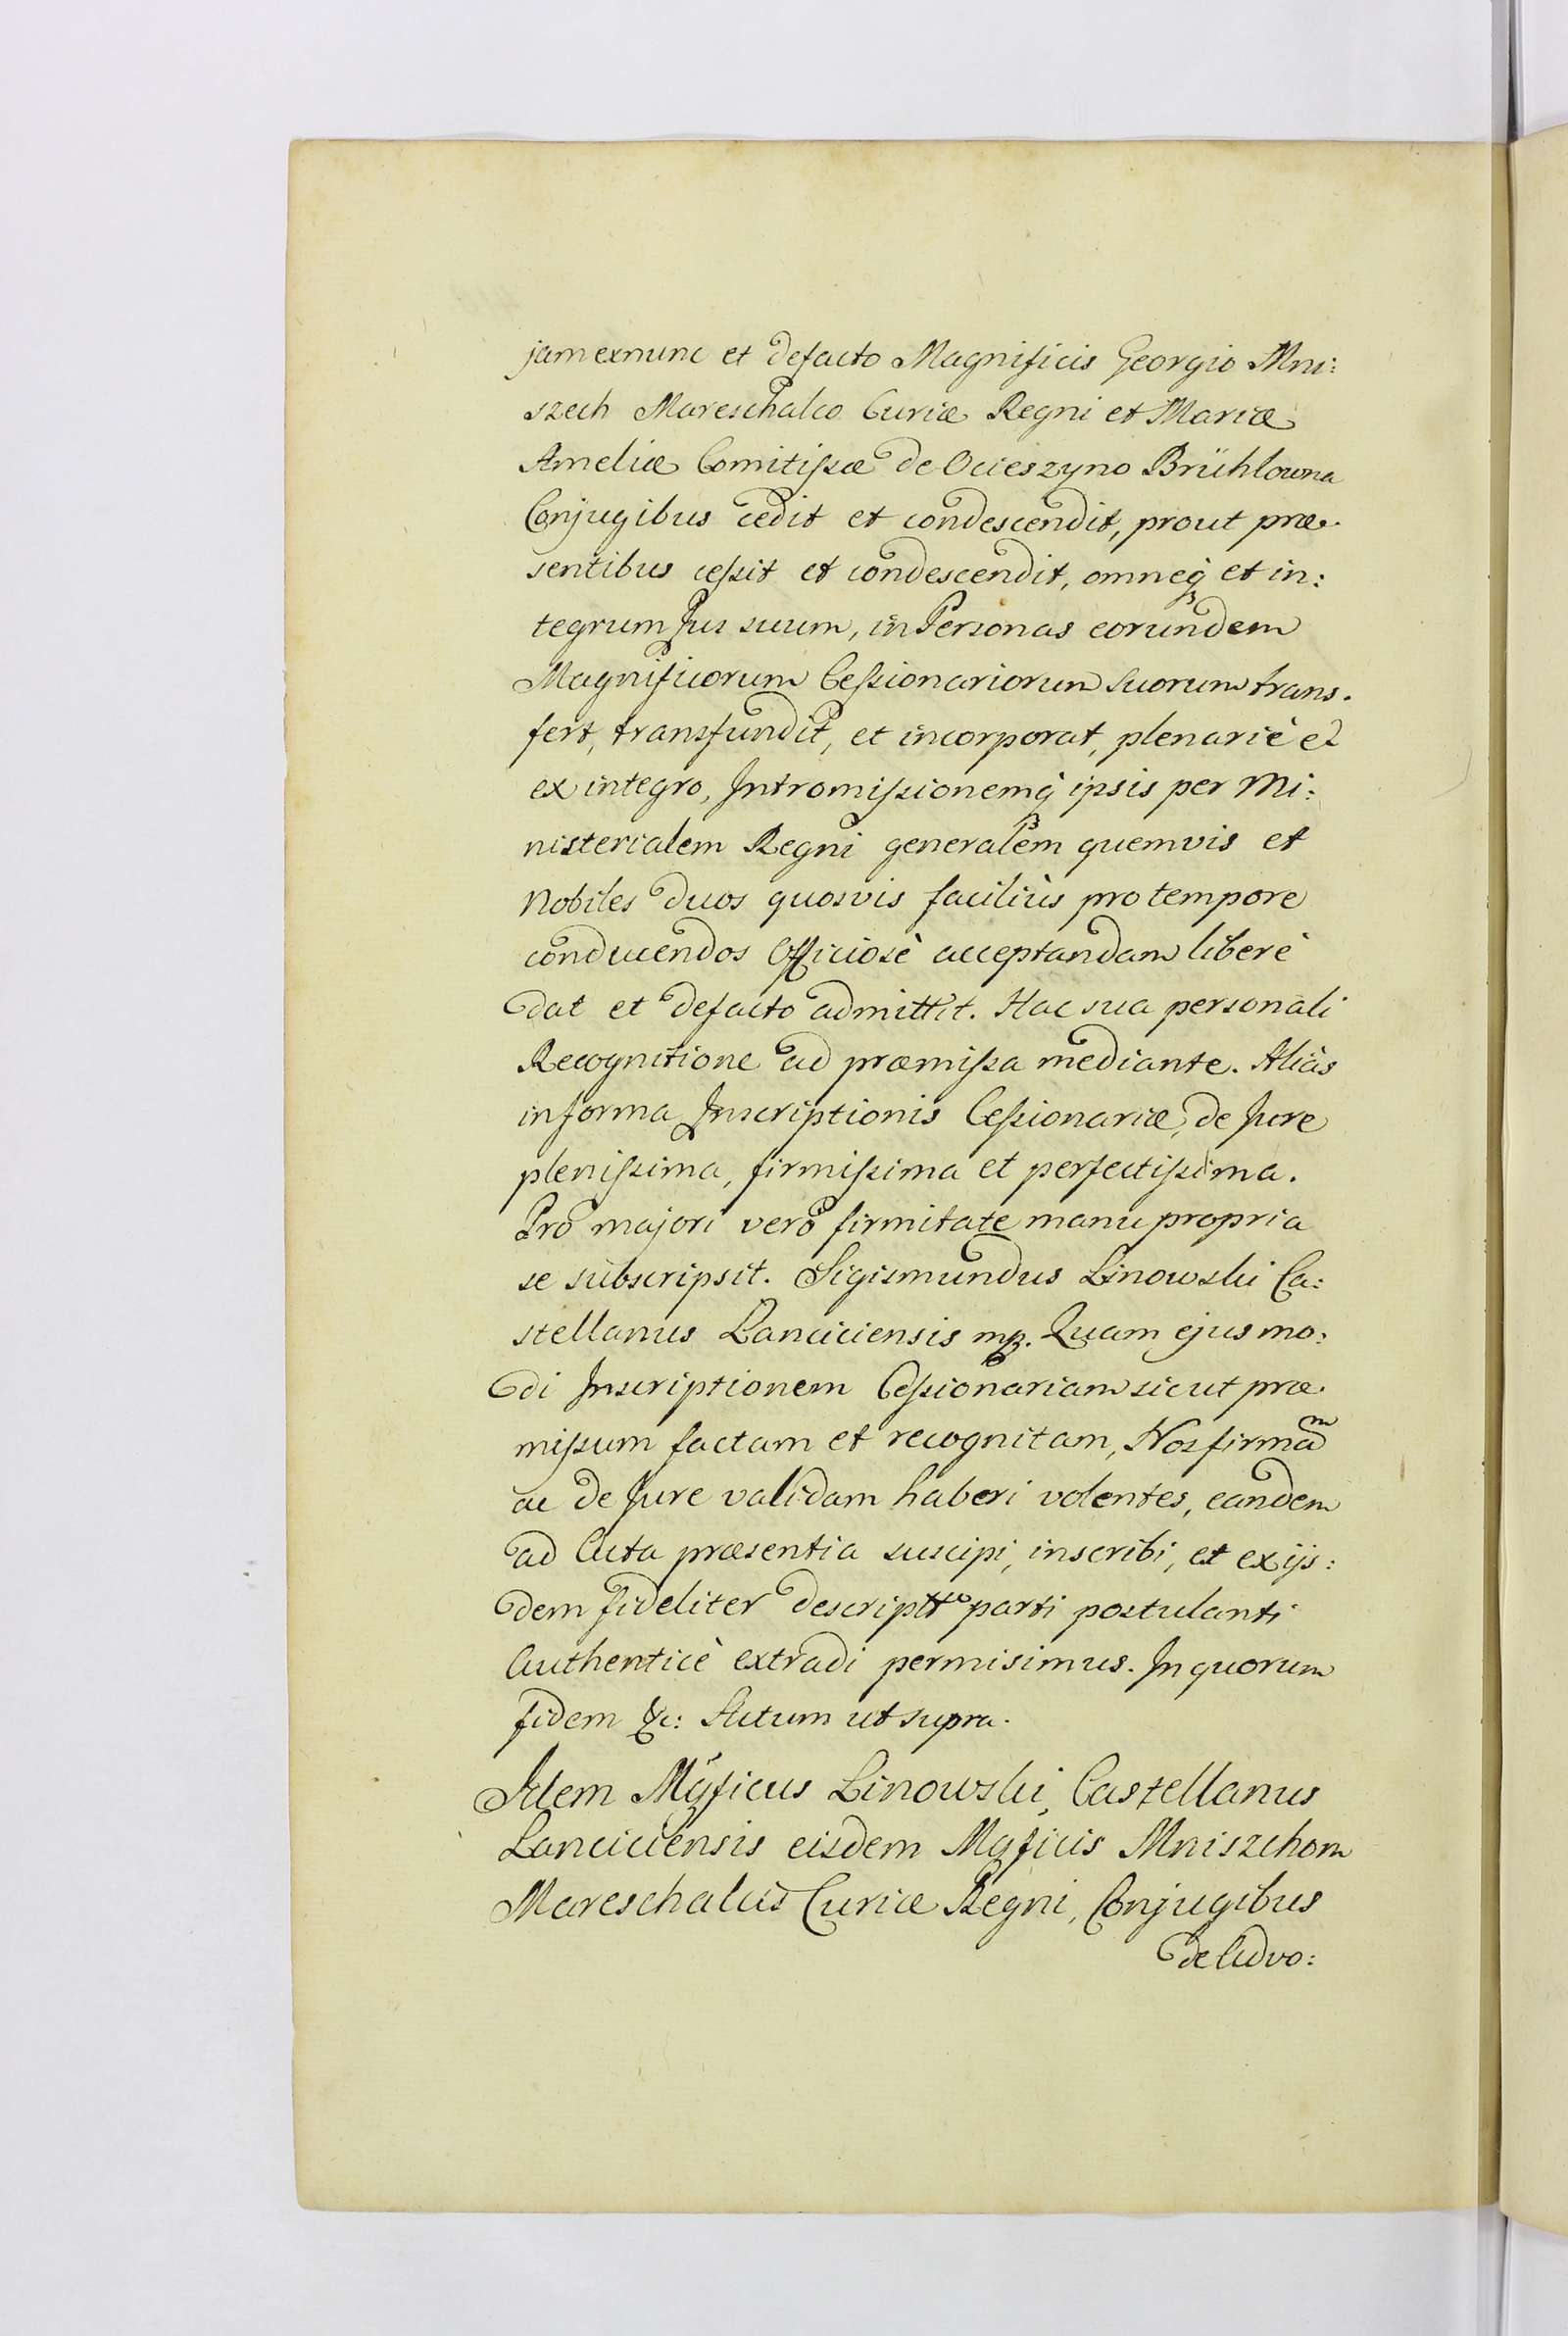 jam exnunc et defacto Magnificis Georgio Mni:
szech Mareschalco Curiæ Regni et Mariæ
Ameliæ Comitißæ de Ocieszyno Brühlowna
Conjugibus cedit et condescendit, prout præ.
sentibus ceßit et condescendit, omneq́ȝ et in:
tegrum Jus suum, in Personas eorundem
Magnificorum Ceßionariorum suorum trans.
fert, transfundit, et incorporat, plenariè et
ex integro, Intromißionemq́ȝ ipsis per Mi:
nisterialem Regni generalem quemvis et
Nobiles duos quosvis faciliùs pro tempore
conducendos Officiosè acceptandam liberè
dat et defacto admittit. Hac sua personali
Recognitione ad præmißa mediante. Aliàs
in forma Inscriptionis Ceßionariæ, de Jure
plenißima, firmißima et perfectißima.
Pro majori verò firmitate manu propria
se subscripsit. Sigismundus Linowski Ca:
stellanus Lanciciensis mp. Quam ejusmo:
di Inscriptionem Ceßionariam sicut præ.
mißum factam et recognitam, Nos firmaͫ
ac de Jure validam haberi volentes, eandem
ad Acta præsentia suscipi, inscribi, et ex ijs:
dem fideliter descripttͦ parti postulanti
Authenticè extradi permisimus. In quorum
fidem &c: Actum ut supra.
Idem Mgficus Linowski, Castellanus
Lanciciensis eisdem Mgficis Mniszchom
Mareschalcis Curiæ Regni, Conjugibus
de Advo: